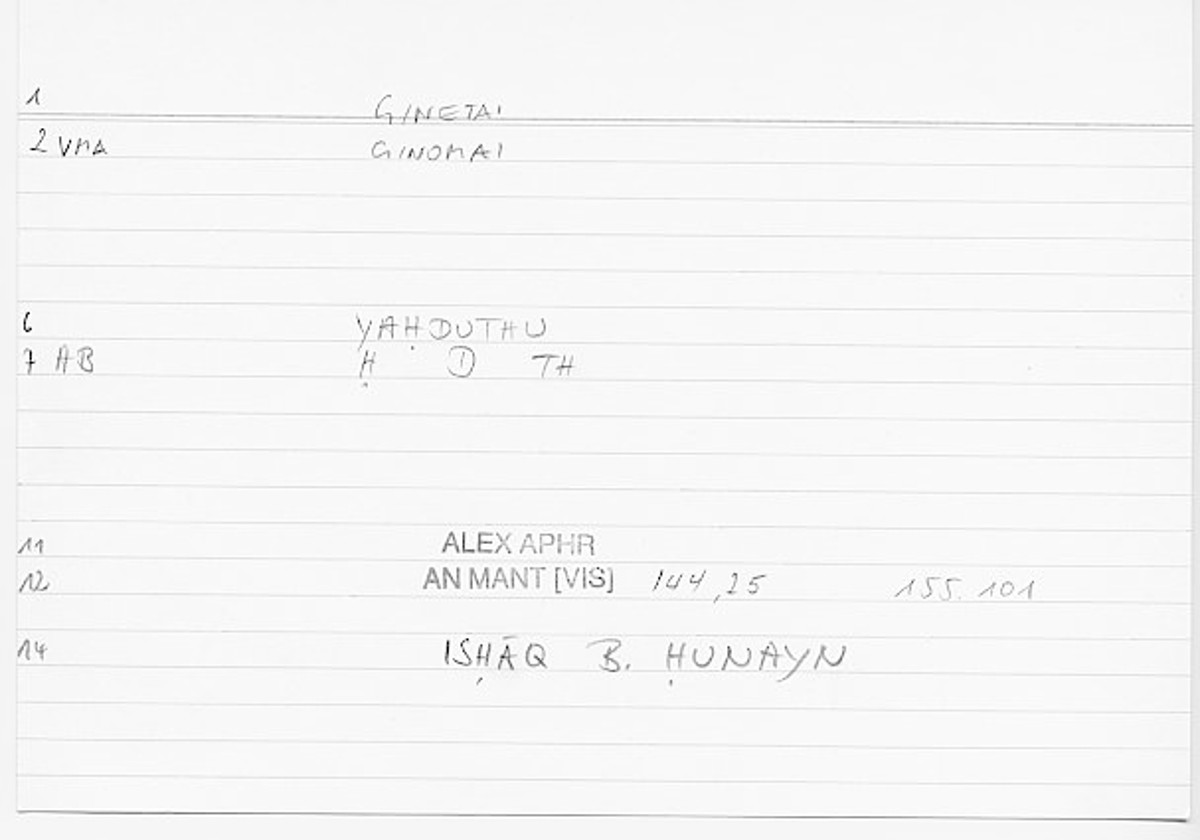 1 GINETAI
2 VMA GINOMAI
6 YAḤDUTHU
7 AB Ḥ D TH
11 ALEX APHR
12 AN MANT [VIS] 144,25 155.101
14 ISḤĀQ B. ḤUNAYN